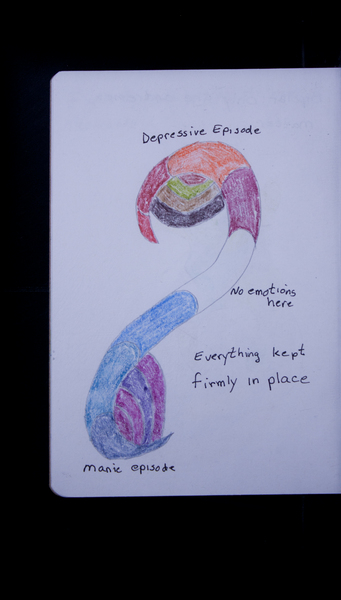 Depressive Episode
No emotions
here
Everything kept
firmly in place
Manic episode